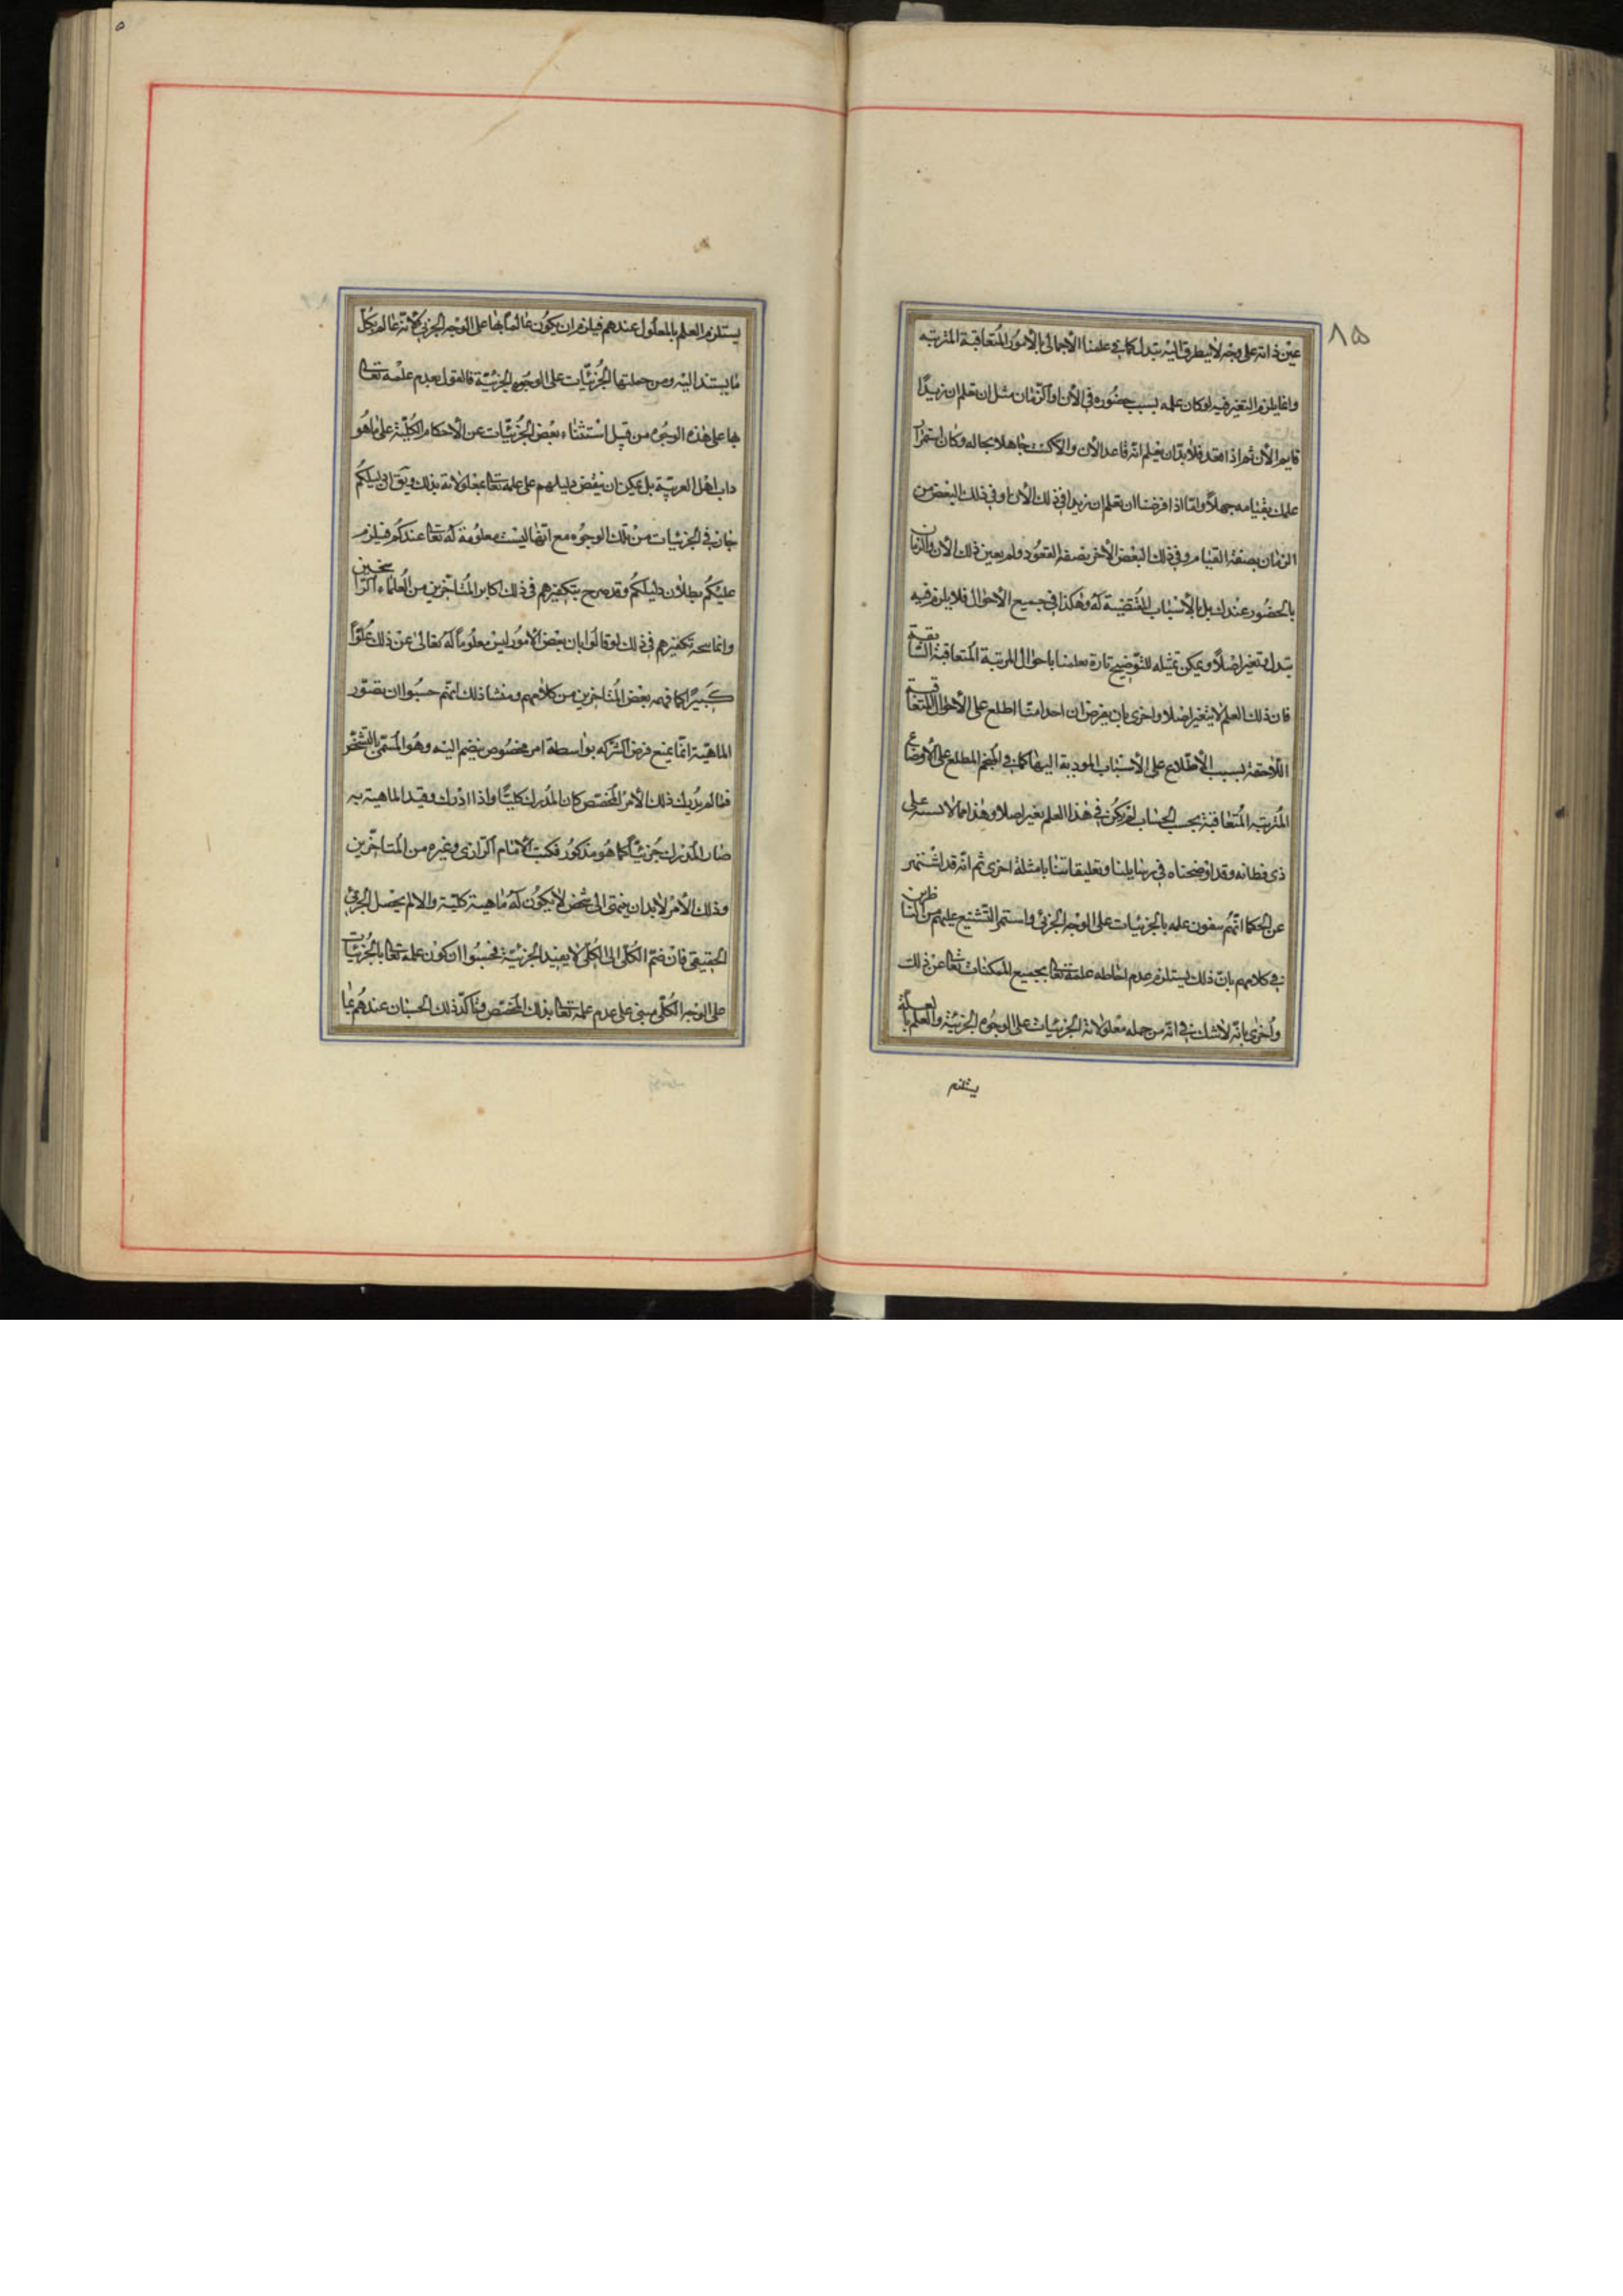 ٨٥
عين ذاته على وجه لا يتطرق اليه تبدل كما في علمنا الاجمالي بالأمور المتعاقبة المترتبه
وانما يلزم التغير فيه لو كان علمه بسبب حضوره في الآن او الزمان مثل ان تعلم ان زيدًا
قايم الآن ثم اذا قعد فلا بد ان يعلم انه قاعد الآن والا كنت جاهلا بحاله وكان استمرار
علمك بقيامه جهلاً واما اذا فرضنا ان تعلم ان زيدا في ذلك الآن او في ذلك البعض من
الزمان بصفة القيام وفي ذلك البعض الأخر بصفة القعود ولم يعين ذلك الآن والزمان
بالحضور عندك بل بالأسباب المقتضية له وهكذا في جميع الأحوال فلا يلزم فيه
تبدل وتغير اصلاً ويمكن تمثيله للتوضيح تارة بعلمنا باحوال المرتبة المتعاقبة السابقة
فان ذلك العلم لا يتغير اصلا واخرى بان يفرض ان احدا منا اطلع على الأحوال المتعاقبة
اللاحقة بسبب الأطلاع على الأسباب المودية اليها كما في المنجم المطلع على الأوضاع
المترتبه المتعاقبة بحسب الحساب لم يكن في هذا العلم تغير اصلا وهذا مما لا يشتبه على
ذى فطانه وقد اوضحناه في رسايلنا وتعليقاتنا بامثلة اخرى ثم انه قد اشتهر
عن الحكما انهم ينفون علمه بالجزئيات على الوجه الجزئي واستمر التشنيع عليهم من الناظرين
في كلامهم بان ذلك يستلزم عدم احاطه علمه تعالى بجميع الممكنات تعالى عن ذلك
واخرى بانه لا شك في انه من جمله معلولاته الجزئيات على الوجوه الجزئية والعلم بالعلة
يستلزم
يستلزم العلم بالمعلول عندهم فيلزم ان يكون عالماً بها على الوجه الجزئي لأنه عالم بكل
ما يستند اليه ومن جملتها الجزئيات على الوجوه الجزئية فالقول بعدم علمه تعالى
بها على هذه الوجوه من قبيل استثناء بعض الجزئيات عن الأحكام الكلية على ما هو
داب اهل العربية بل يمكن ان ينقض دليلهم على علمه تعالى بمعلولاته بذلك ويق ان دليلكم
جار في الجزئيات من تلك الوجوه مع انها ليست معلومة له تعالى عندكم فيلزم
عليكم بطلان دليلكم وقد صرح بتكفيرهم في ذلك اكابر المتاخرين من العلماء الراسخين
وانما يتجه تكفيرهم في ذلك لو قالوا بان بعض الأمور ليس معلوماً له تعالى عن ذلك علواً
كبيراً كما فهمه بعض المتاخرين من كلامهم ومنشا ذلك انهم حسبوا ان تصور
الماهية انما يمنع فرض الشركه بواسطة امر مخصوص ينضم اليه وهو المسمى بالتشخص
فما لم يدرك ذلك الأمر المختص كان المدرك كلياً واذا ادرك وقيد الماهية به
صار المدرك جزئياً كما هو مذكور في كتب الأمام الرازي وغيره من المتاخرين
وذلك الأمر لا بد ان ينتهى الى شخص لا يكون له ماهية كلية والا لم يحصل الجزئي
الحقيقي فان ضم الكلى الى الكلى لا يفيد الجزئية فحسبوا ان كون علمه تعالى بالجزئيات
على الوجه الكلى مبنى على عدم علمه تعالى بذلك المختص وتاكد ذلك الحسبان عندهم بما